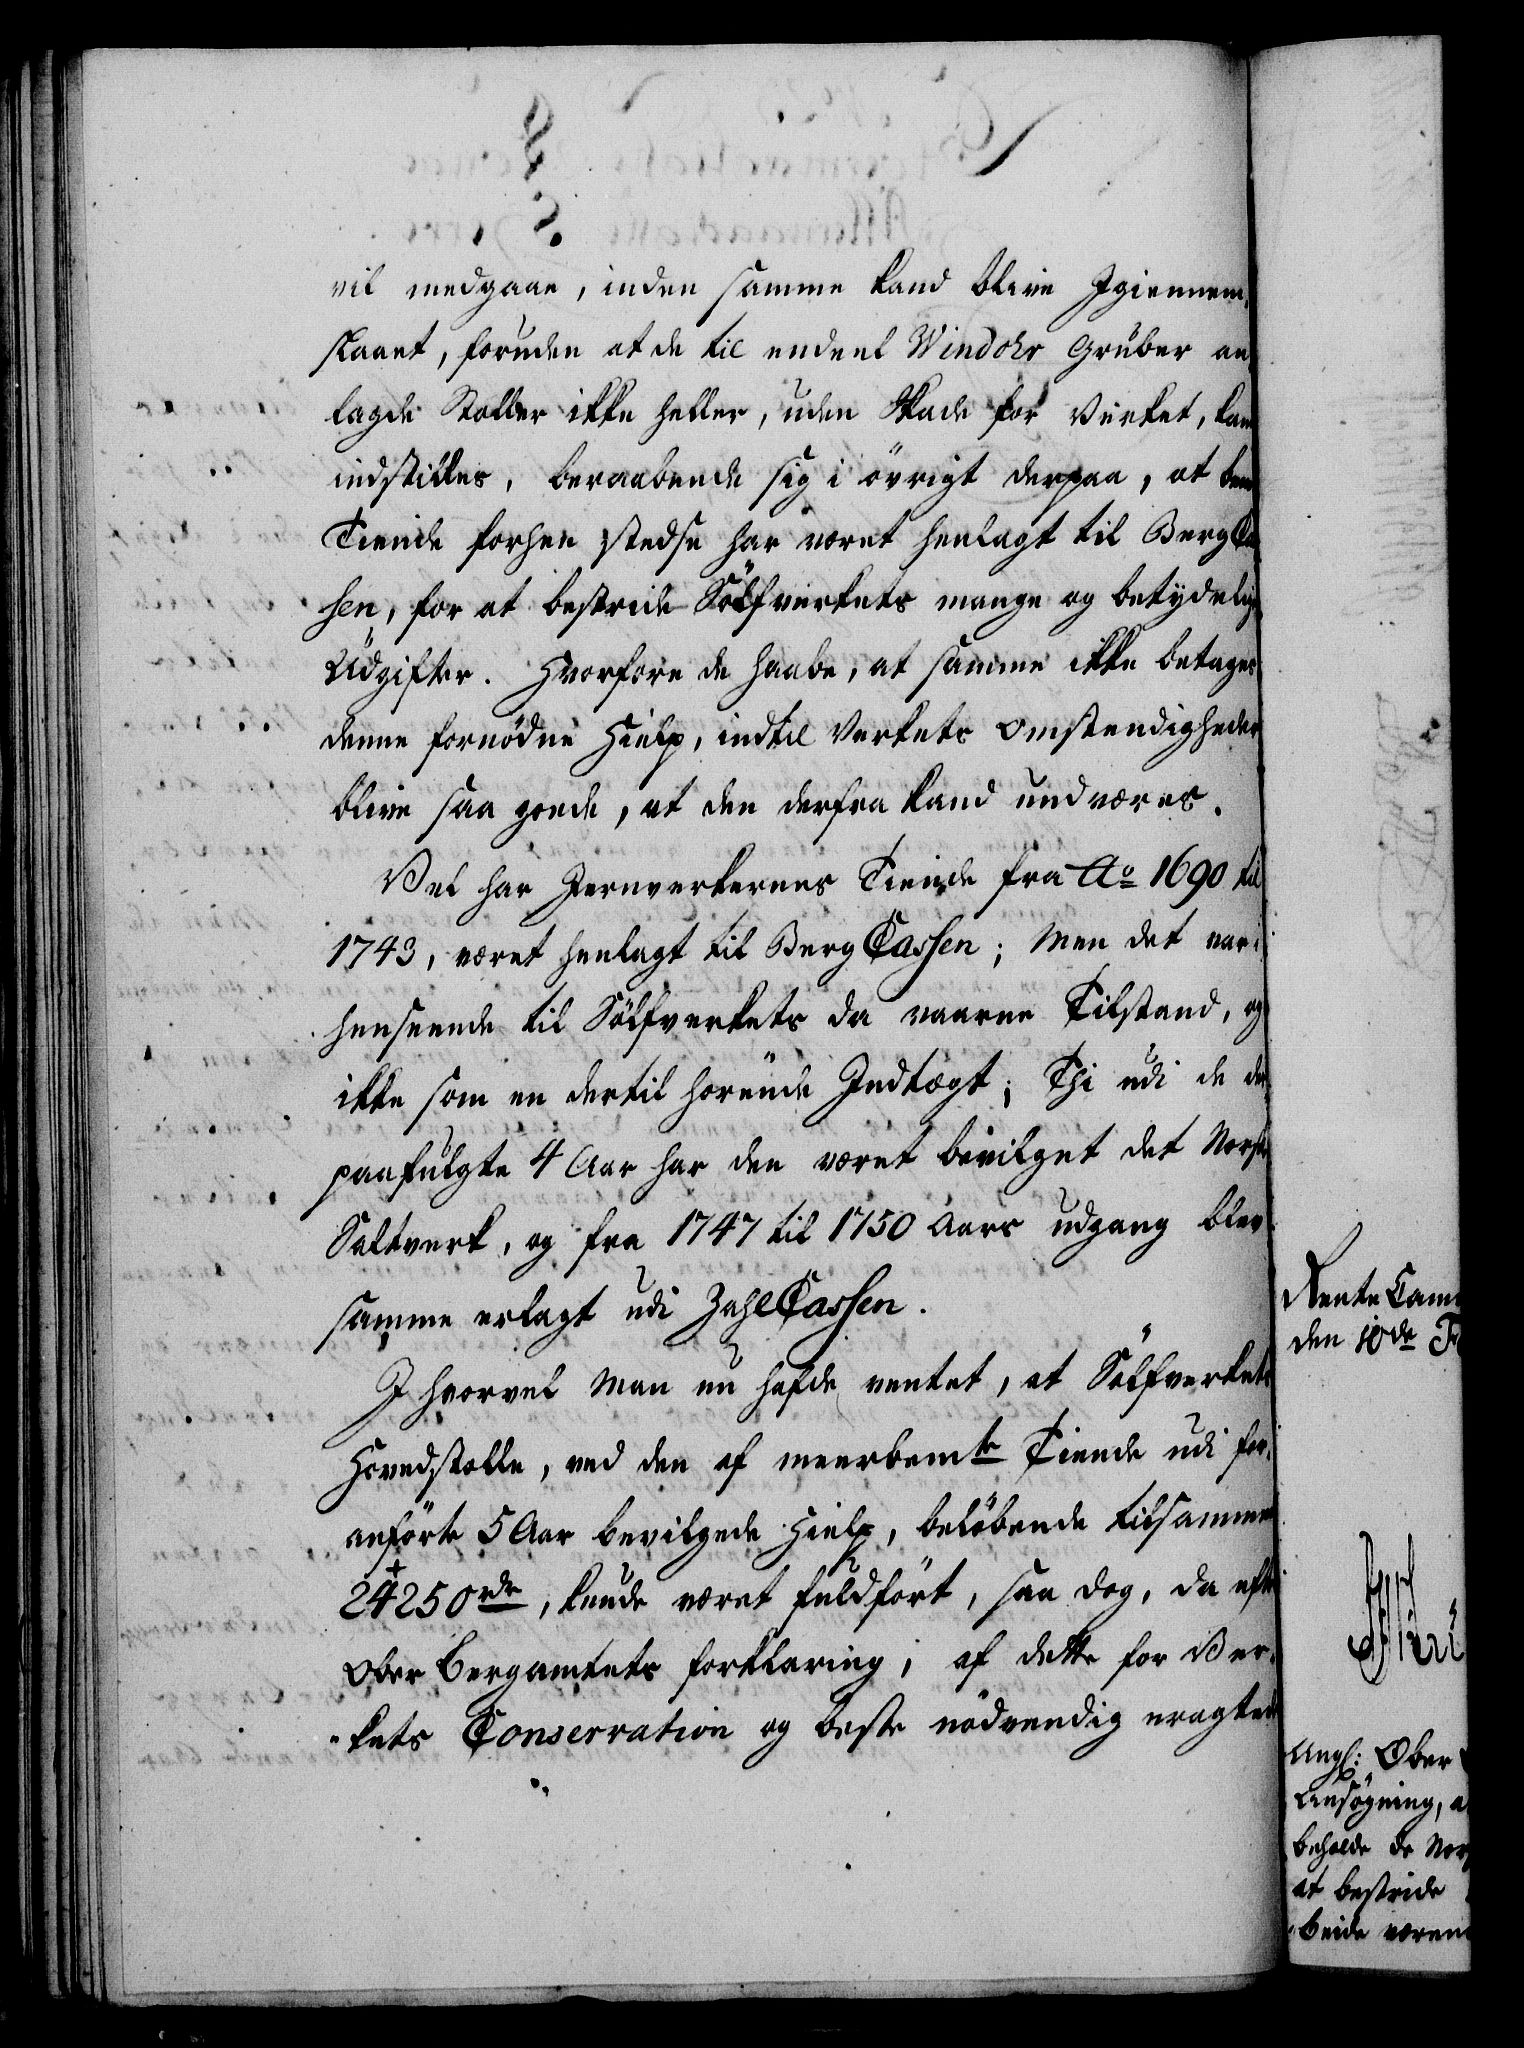 vil medgaae, inden samme kand blive Igiennem-
slaaet, foruden at de til endeel Windohr Gruber an-
lagde Stoller ikke heller, uden Skade for Verket, kan
indstilles, beraabende sig i övrigt derpaa, at bem
Tiende forhen stedse har været henlagt til Berg Ca
ssen, for at bestride Sölfverkets mange og betydelig
Udgifter. Hvorfore de haabe, at samme ikke betages
denne fornödne Hielp, indtil Verkets omstendigheder
blive saa goede, at den derfra kand undværes.
Vel har Jernverkernes Tiende fra Ao 1690 til
1743, været henlagt til Berg Cassen; Men det var i
henseende til Sölfverkets da værne Tilstand, og
ikke som en dertil hörende Indtægt; Thi udi de der
paafulgte 4 Aar har den været bevilget det Norske
Saltverk, og fra 1747 til 1750 Aars udgang blev
samme erlagt udi ZahlCassen.
I hvorvel Man nu hafde ventet, at Sölfverkets
Hovedstolle, ved den af meerbemte Tiende udi for-
anförte 5 Aar bevilgede Hielp, belöbende tilsammen
24250 rdr, kunde været fuldfört, saa dog, da efter
Ober Bergamtets forklaring, af dette for Ver-
kets Conservation og beste nödvendig eragtede
Rente Cam
den 18de F
Angl: Ober
Ansögning, a
beholde de Nor
at bestride
beide væren